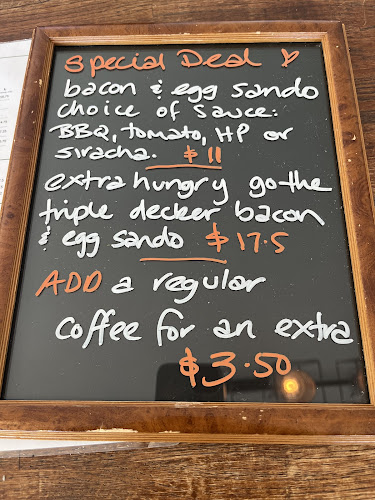 Special Deal
bacon & egg sando
choice of sauce:
BBQ, tomato, HP or
siracha. $11
extra hungry go the
triple decker bacon
& egg sando $17.5
ADD a regular
coffee for an extra
$3.50